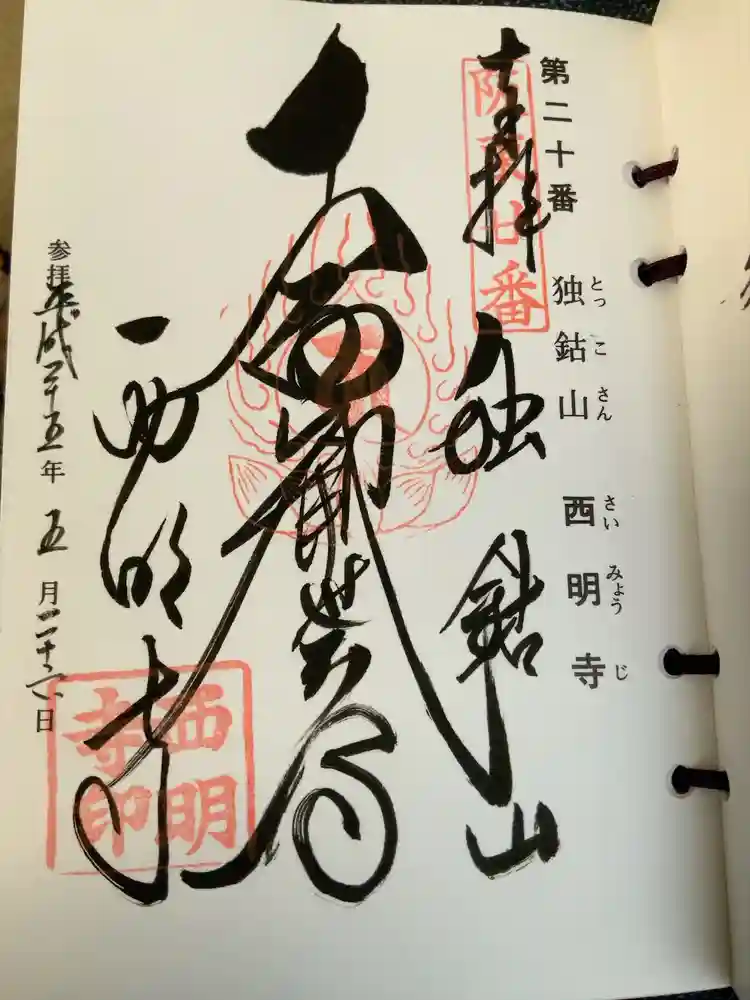 第二十番 独鈷山 西明寺
とっこさん さいみょうじ
奉拝
阪東廿番
独鈷山
西明寺
西明寺印
参拝 平成二十五年 五月二十六日